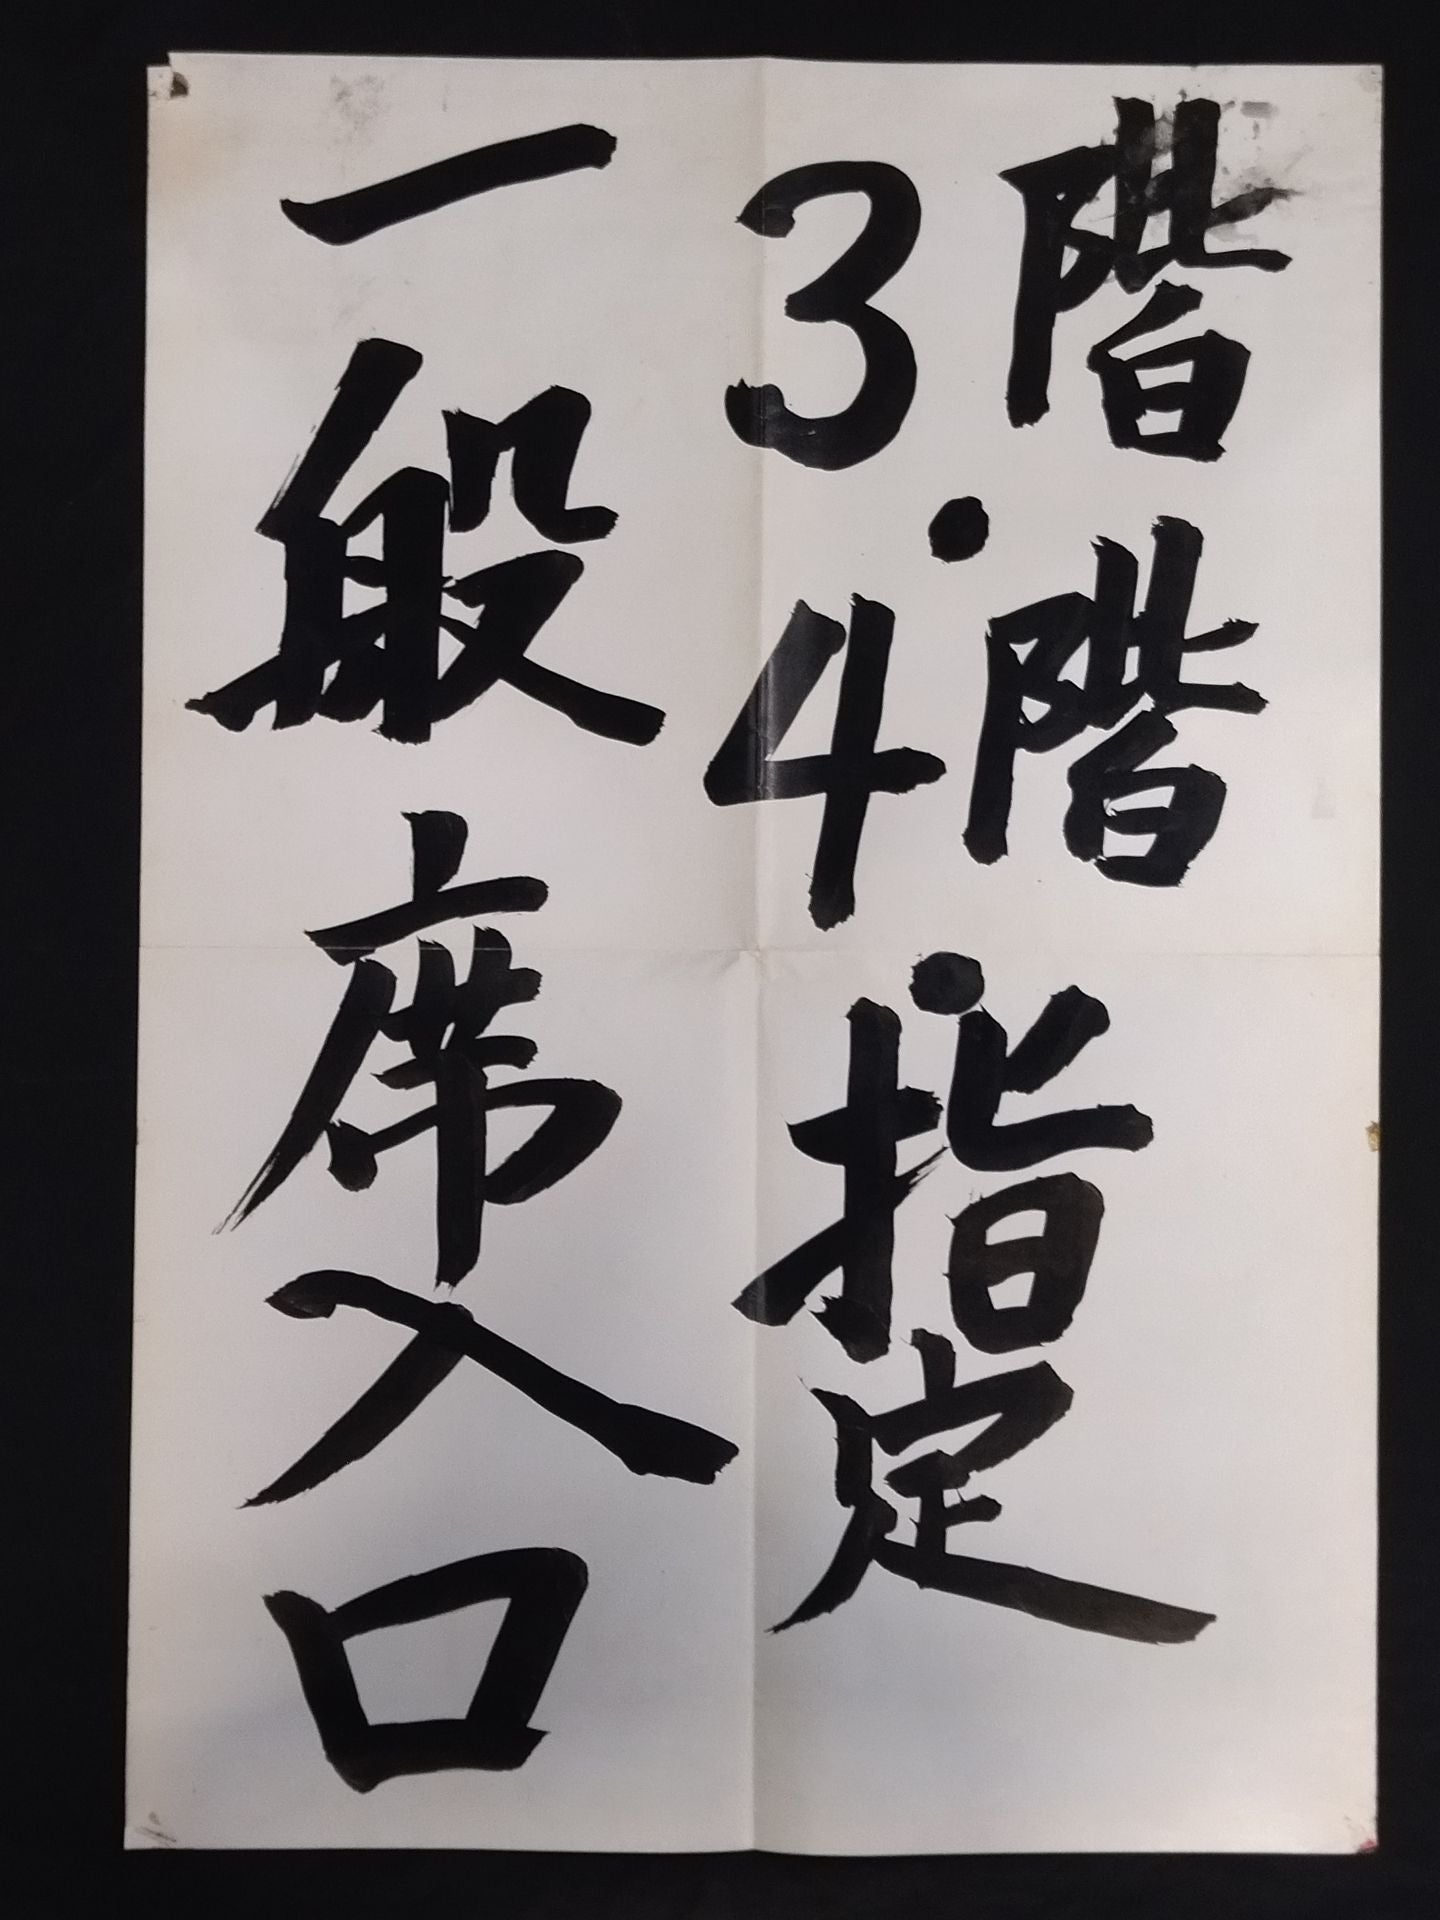 3階・4階・指定
一般席入口